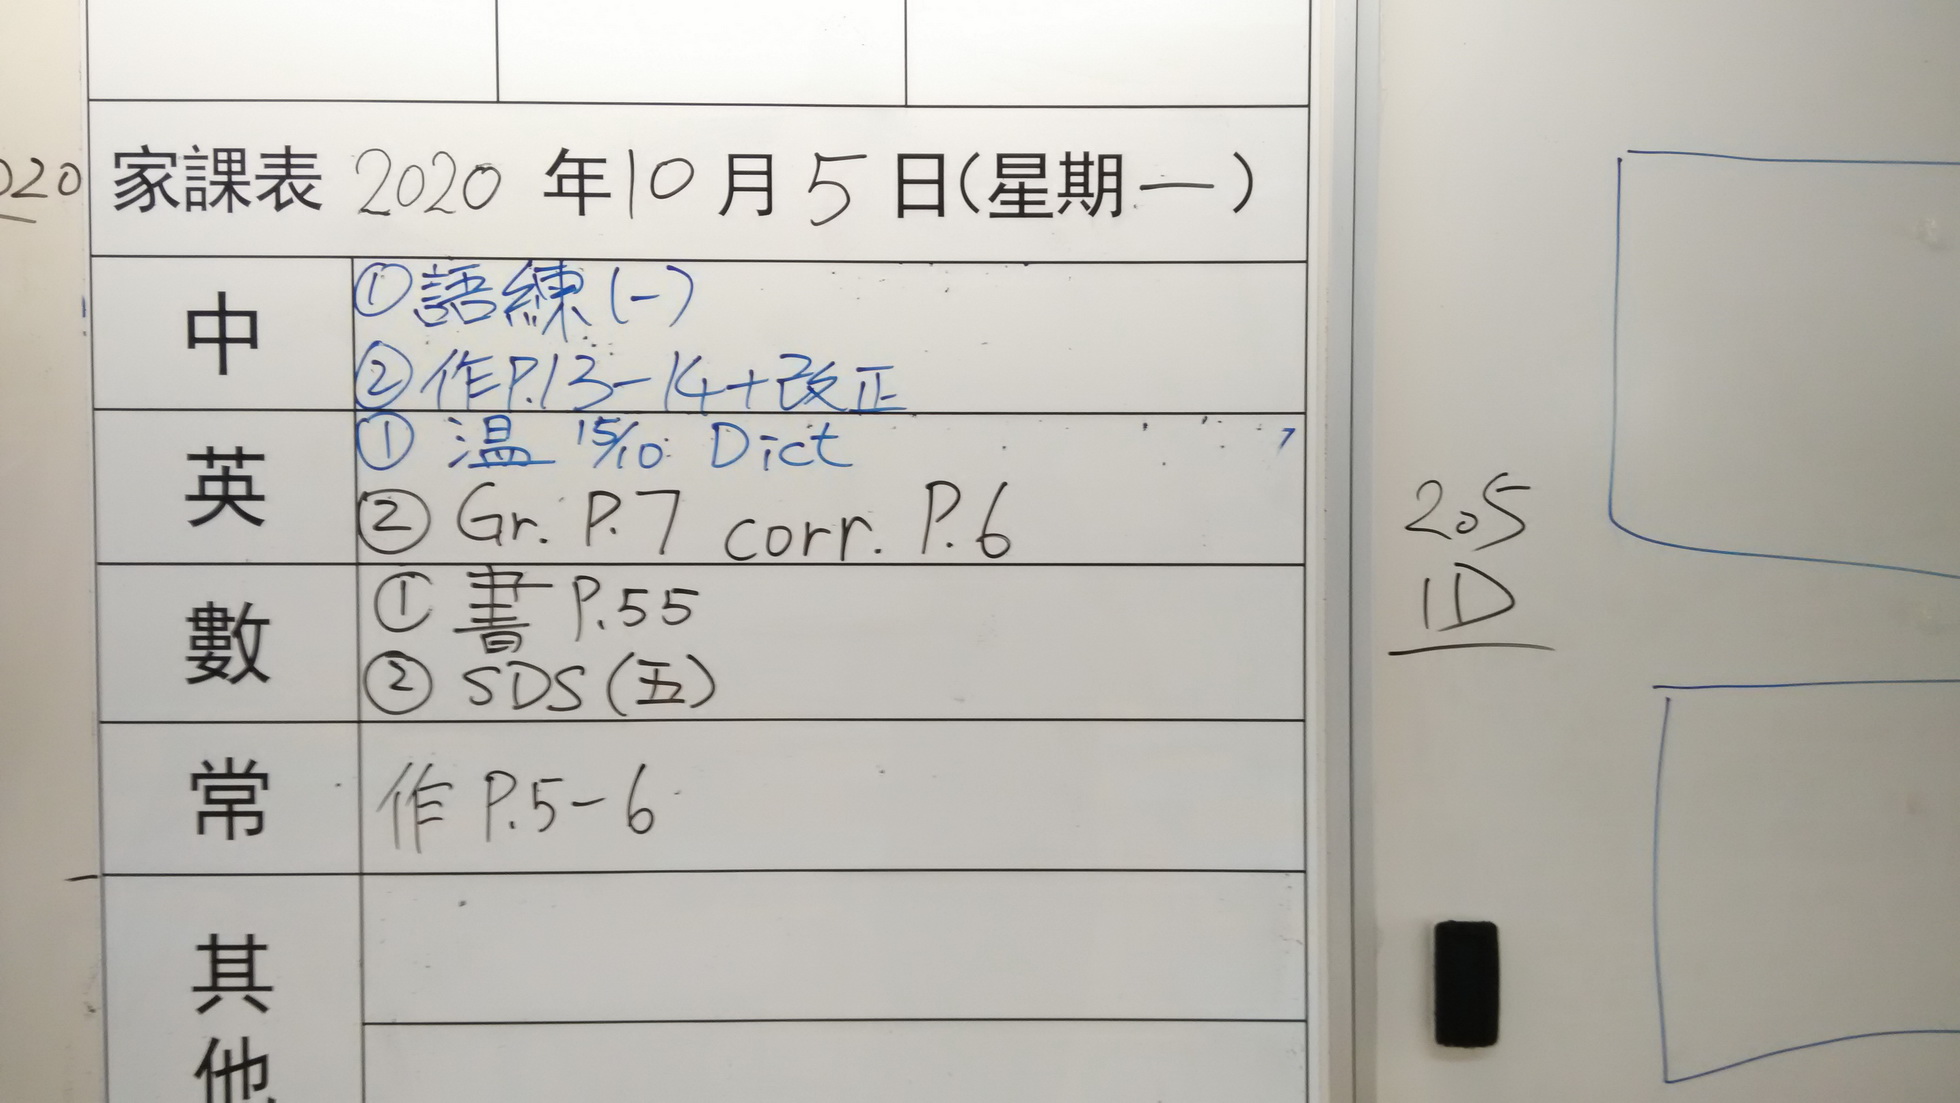 家課表 2020 年 10 月 5 日(星期一)
中
①語練(一)
②作P.13-14+改正
英
① 温 15/10 Dict
② Gr. P.7 corr. P.6
數
① 書 P.55
② SDS(五)
常
作 P.5-6
其他
205
1D